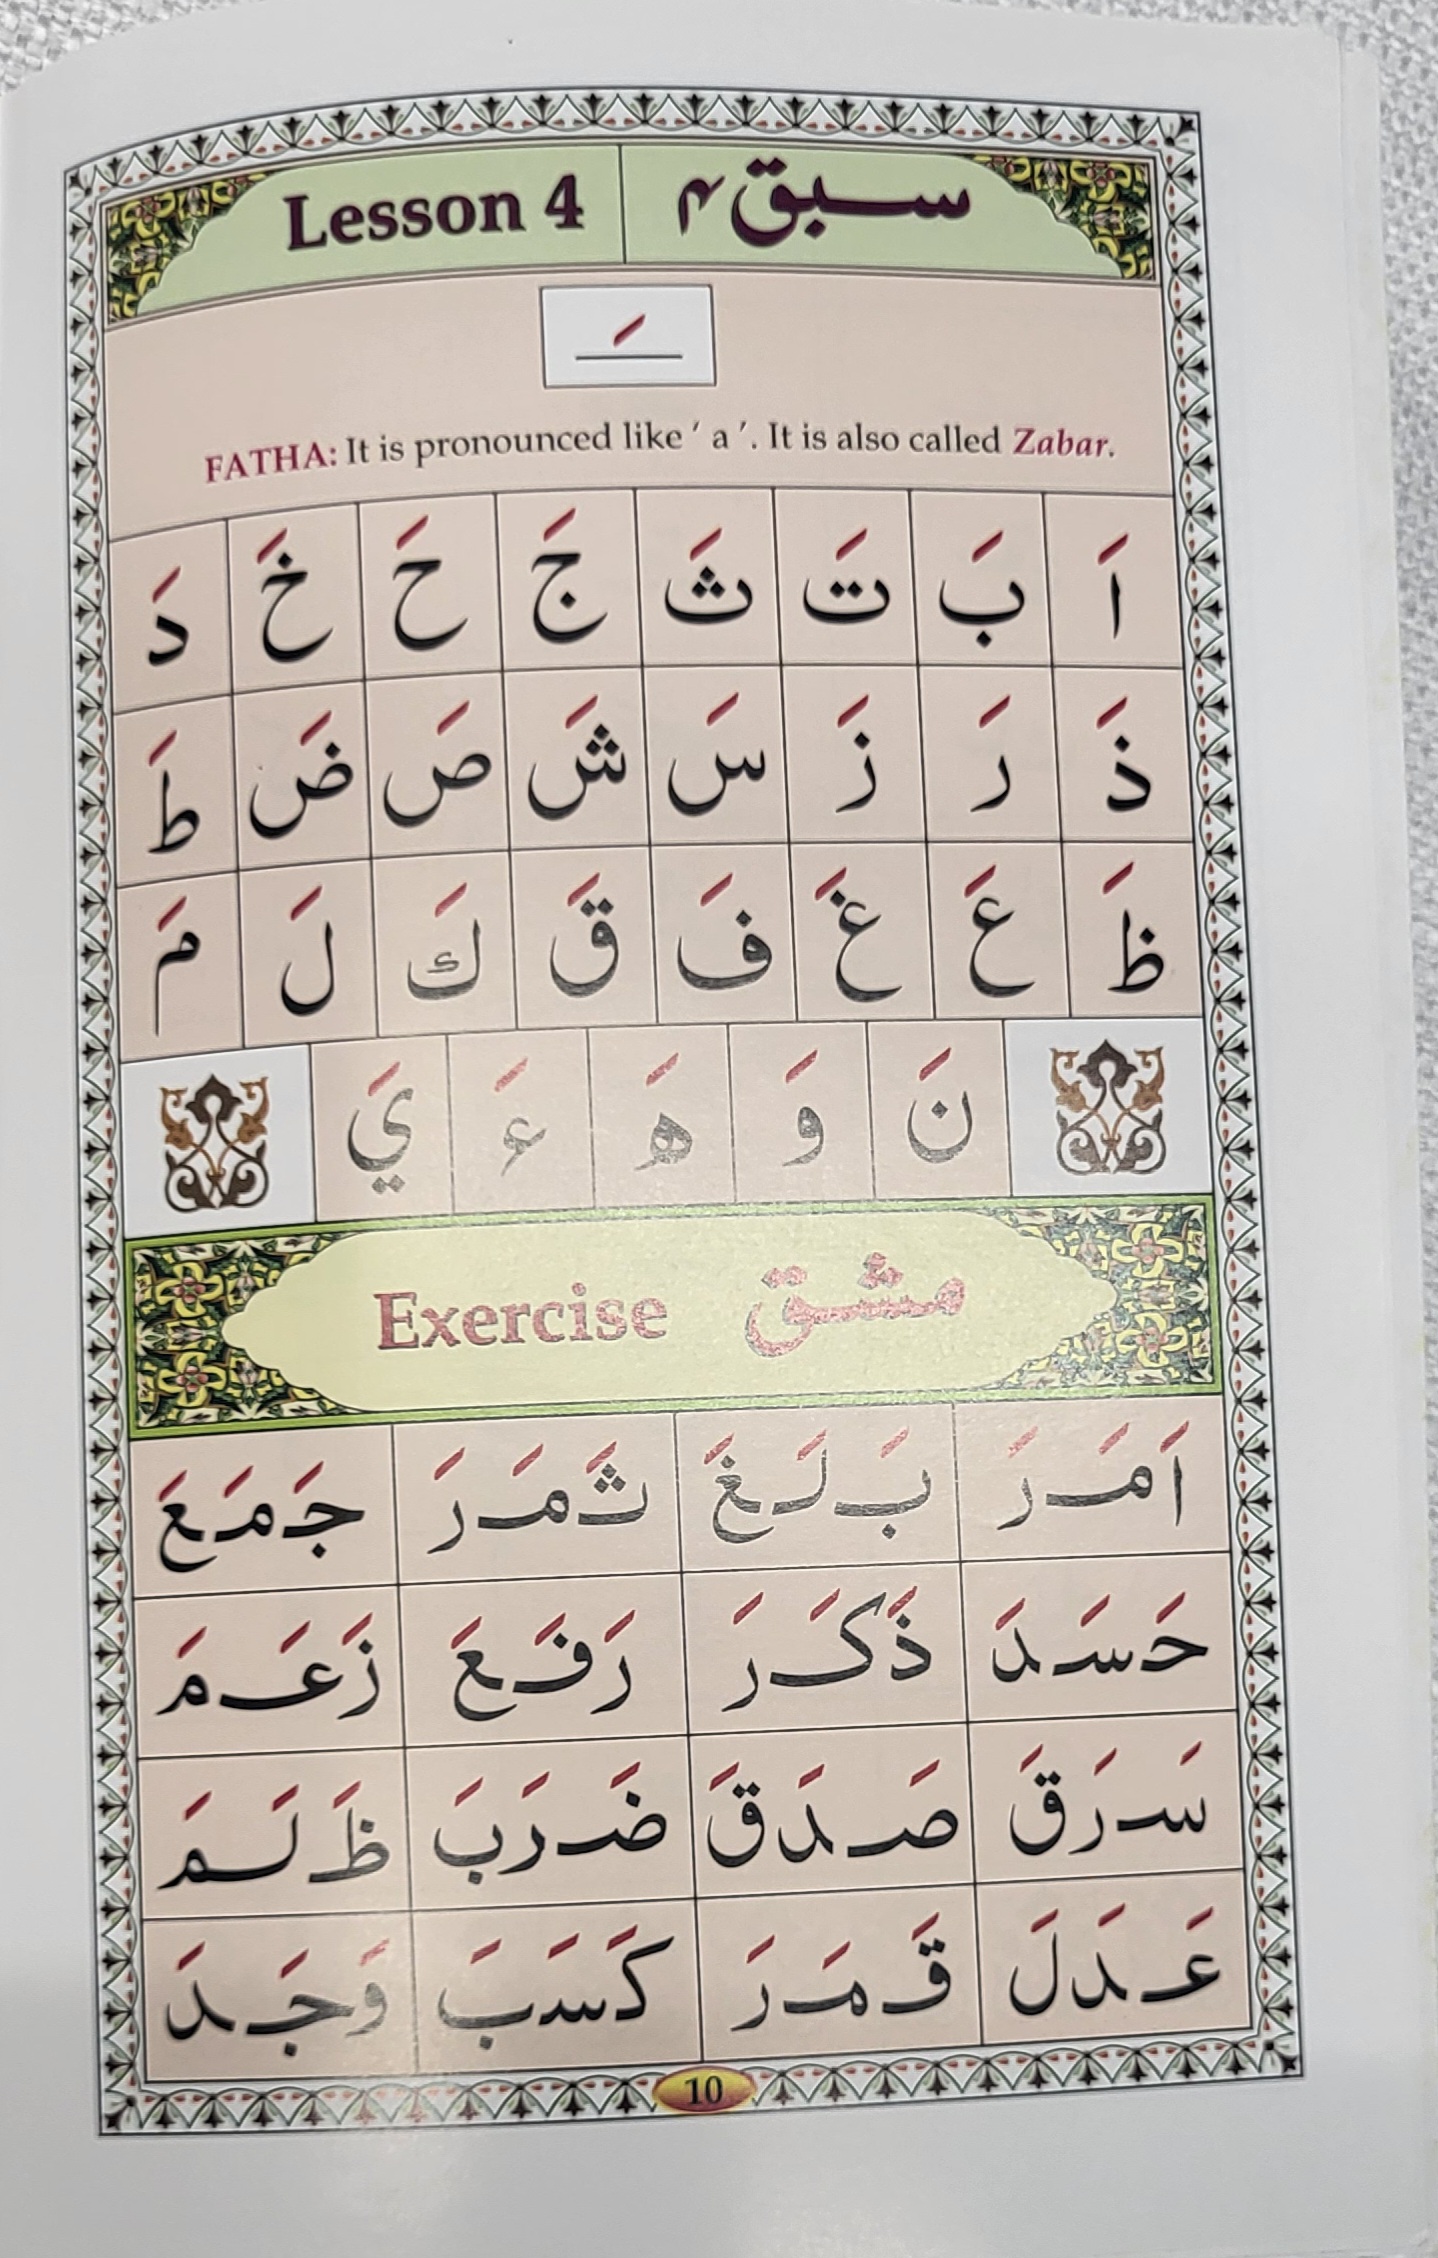 Lesson 4 سبق ۴
ـَ
FATHA: It is pronounced like ' a '. It is also called Zabar.
اَ بَ تَ ثَ جَ حَ خَ دَ
ذَ رَ زَ سَ شَ صَ ضَ طَ
ظَ عَ غَ فَ قَ كَ لَ مَ
نَ وَ هَ ءَ يَ
Exercise مشق
اَمَرَ بَلَغَ ثَمَرَ جَمَعَ
حَسَدَ ذَكَرَ رَفَعَ زَعَمَ
سَرَقَ صَدَقَ ضَرَبَ ظَلَمَ
عَدَلَ قَمَرَ كَسَبَ وَجَدَ
10